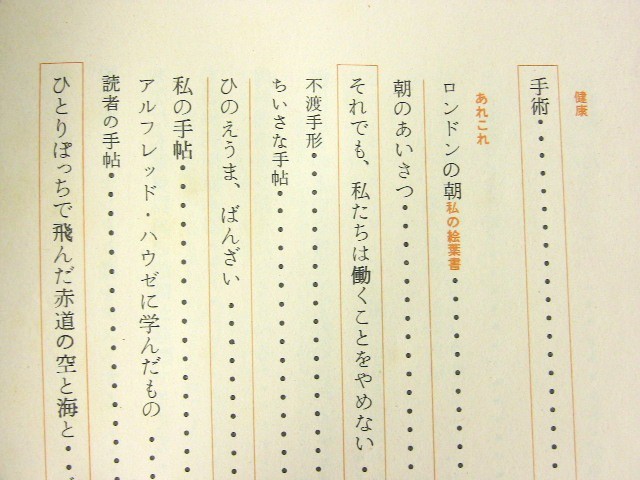 健康
手術・・・・・・・・・・・・・・・・
あれこれ
ロンドンの朝 私の絵葉書・・・・・・・・・
朝のあいさつ・・・・・・・・・・・・・
それでも、私たちは働くことをやめない・
不渡手形・・・・・・・・・・・・・・・
ちいさな手帖・・・・・・・・・・・・・
ひのえうま、ばんざい・・・・・・・・
私の手帖・・・・・・・・・・・・・・・
アルフレッド・ハウゼに学んだもの・・
読者の手帖・・・・・・・・・・・・・・
ひとりぽっちで飛んだ赤道の空と海と・・